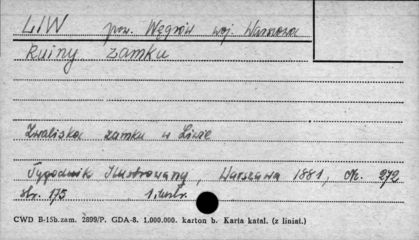 LIW pow. Węgrów woj. Warszawa
Ruiny zamku
Zwaliska zamku w Liwie
Tygodnik Ilustrowany, Warszawa 1881, nr. 272
str. 175 1 ilustr.
CWD B-15b. zam. 2899/P. GDA-8. 1.000.000. karton b. Karta katal. (z liniat.)